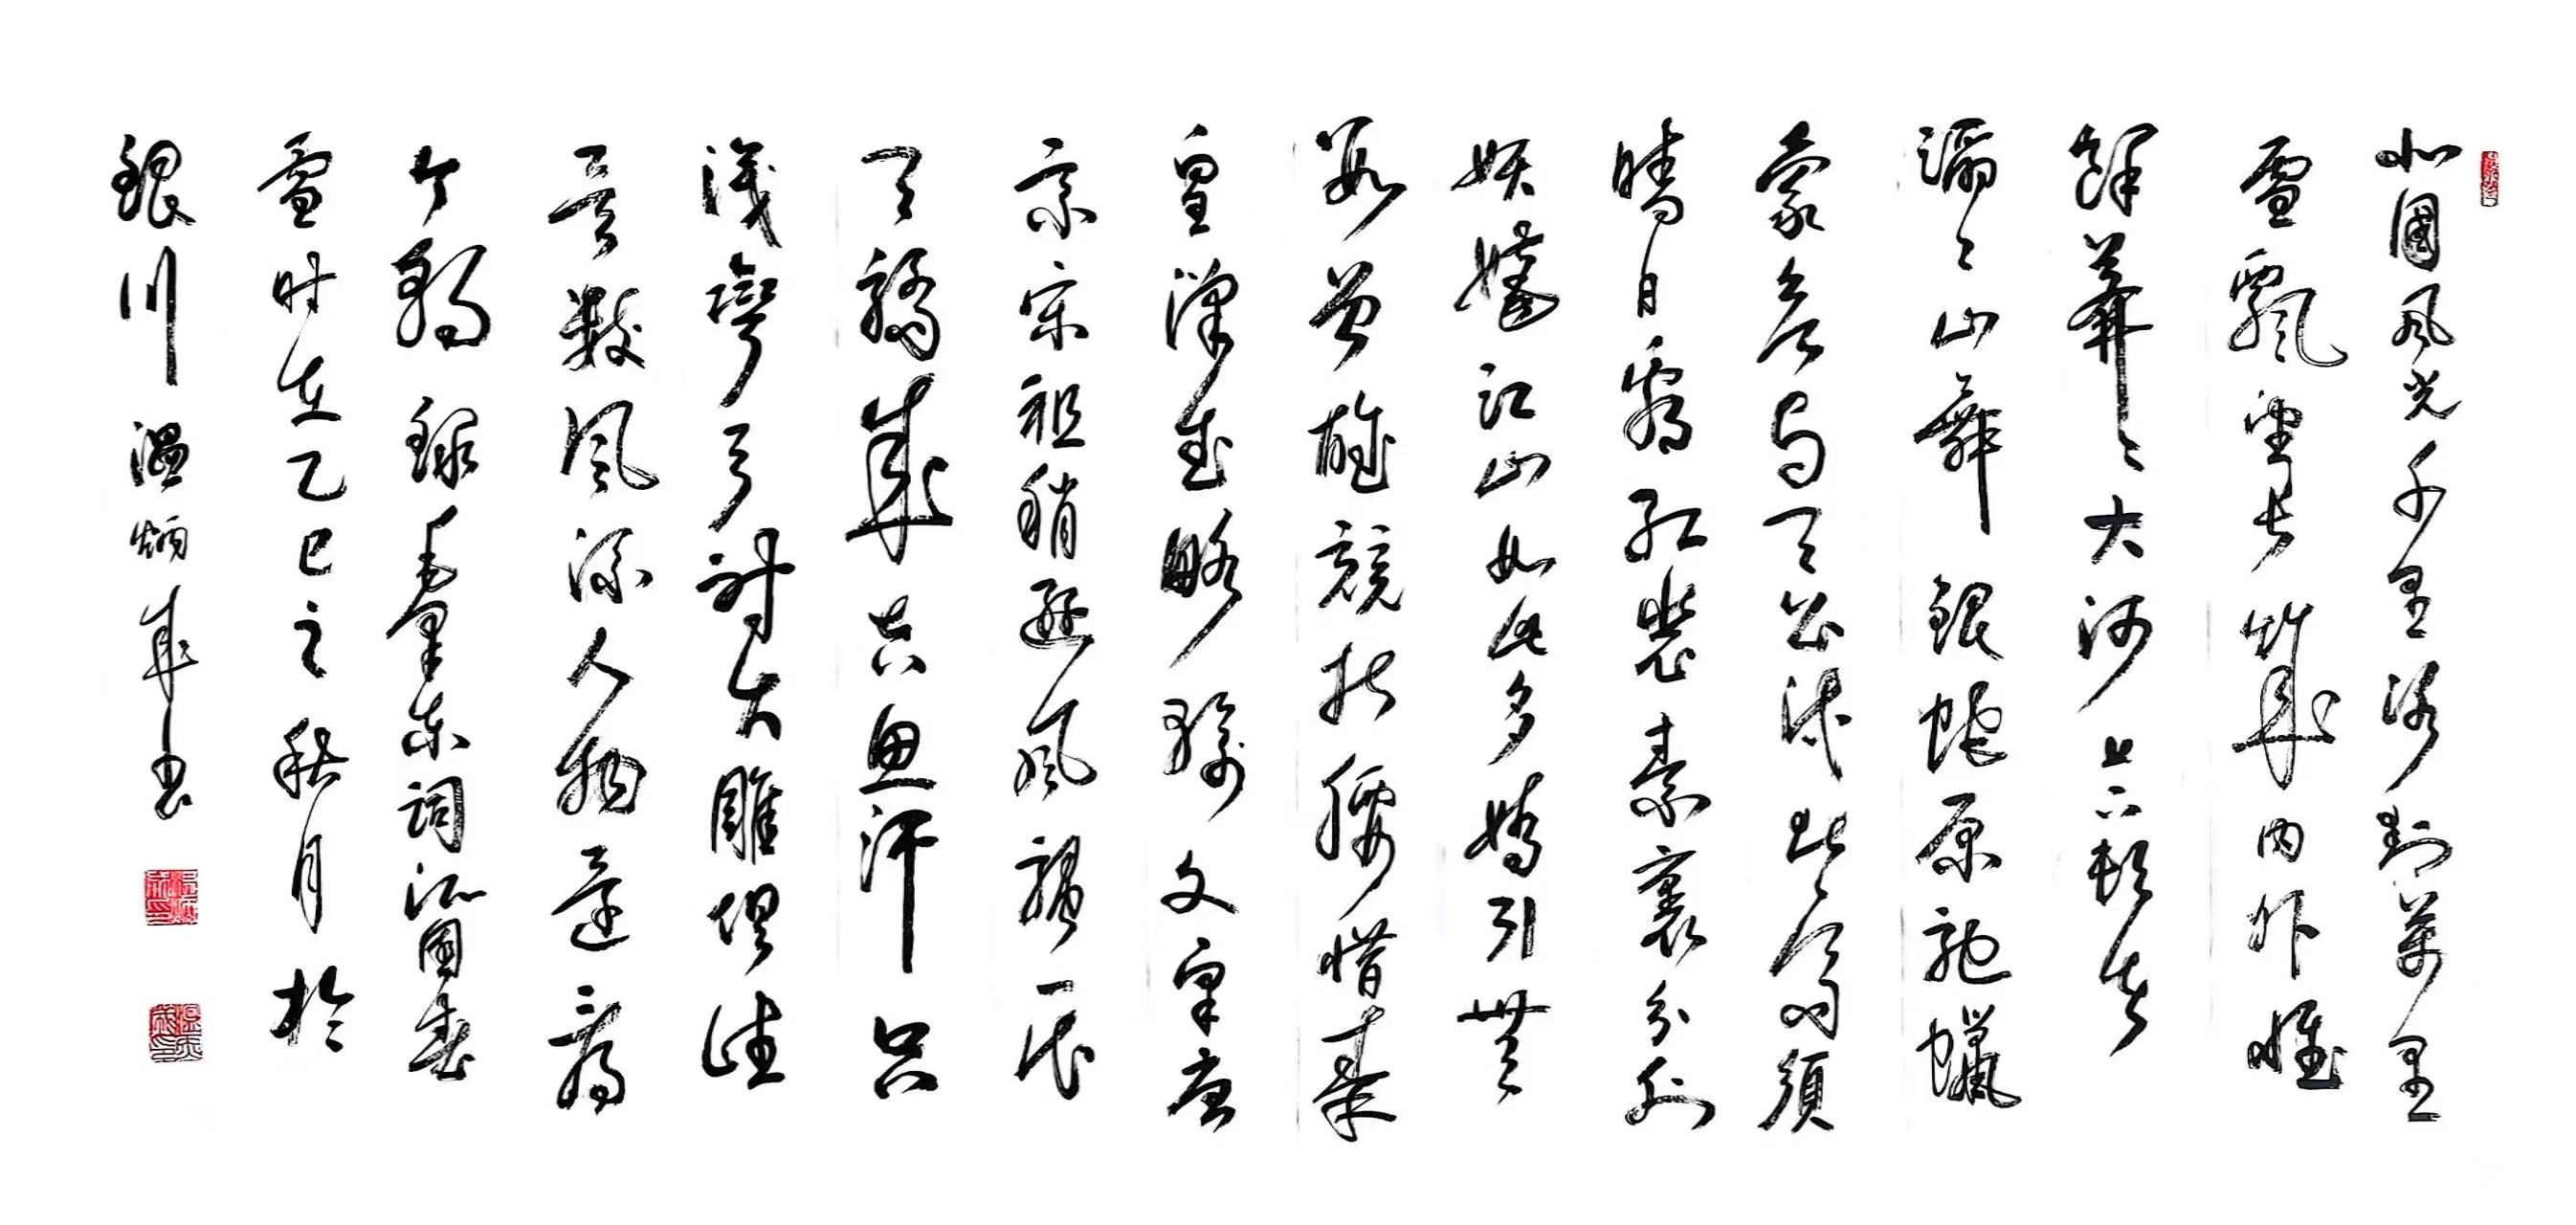 北國風光千里冰封萬里
雪飄望长城内外惟
餘莽々大河上下頓失
滔々山舞銀蛇原馳蠟
象欲与天公試比高須
晴日看紅裝素裹分外
妖嬈江山如此多嬌引無
數英雄競折腰惜秦
皇漢武略輸文采唐
宗宋祖稍遜風騷一代
天驕成吉思汗只
識彎弓射大雕俱往
矣數風流人物還看
今朝錄毛澤東詞沁園春
雪时在乙巳之秋月於
銀川溫炳成书